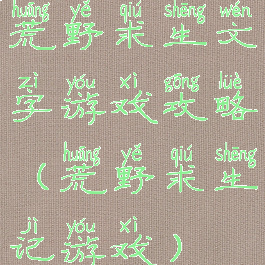 huāng yě qiú shēng wén
荒野求生文
zì yóu xì gōng lüè
字游戏攻略
huāng yě qiú shēng
（荒野求生
jì yóu xì
记游戏）